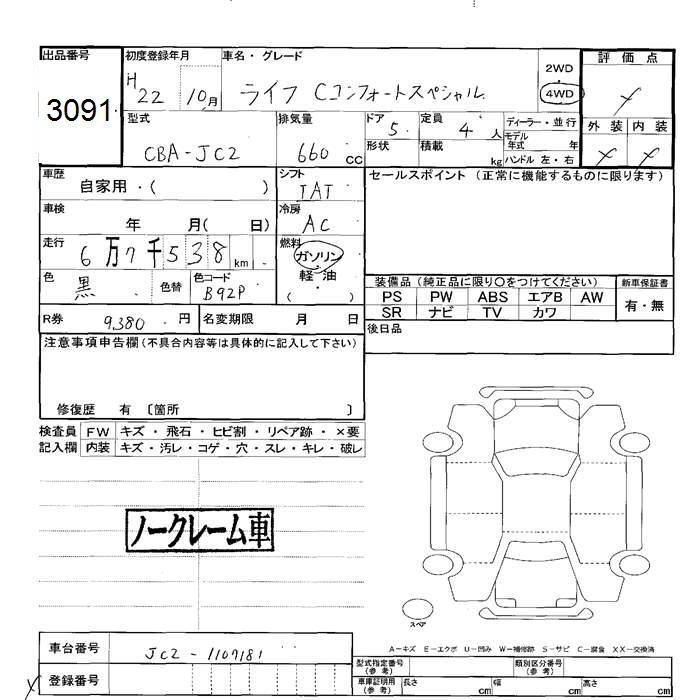 出品番号 初度登録年月 車名・グレード 評価点
3091 H 22 10月 ライフ Cコンフォートスペシャル 2WD 4WD
型式 排気量 ドア 5 定員 4 人 ディーラー・並行 外装 内装
CBA-JC2 660 cc 形状 積載 kg モデル年式 年 ハンドル 左・右
車歴 シフト セールスポイント (正常に機能するものに限ります)
自家用・( ) IAT
車検 冷房
年 月( 日) AC
走行 6万7千538 km 燃料 ガソリン・軽・油 ( )
色 黒 色替 色コード B92P
装備品 (純正品に限り○をつけてください) 新車保証書
PS PW ABS エアB AW 有・無
SR ナビ TV カワ
R券 9,380 円 名変期限 月 日 後日品
注意事項申告欄(不具合内容等は具体的に記入して下さい)
修復歴 有 〔箇所 〕
検査員 FW キズ・飛石・ヒビ割・リペア跡・×要
記入欄 内装 キズ・汚レ・コゲ・穴・スレ・キレ・破レ
ノークレーム車
スペア
A-キズ E-エクボ U-凹み W-補修跡 S-サビ C-腐食 XX-交換済
車台番号 JC2-1107181
登録番号
型式指定番号 (参考) 類別区分番号 (参考)
車庫証明用 (参考) 長さ cm 幅 cm 高さ cm